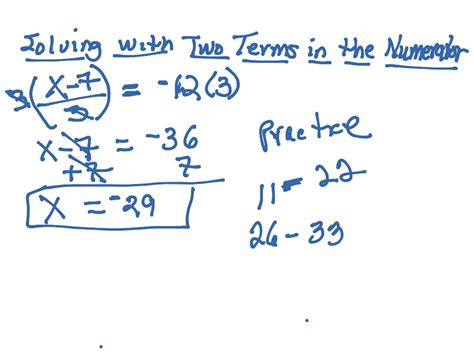 Solving with Two Terms in the Numerator
3(x-7/3) = -12(3)
x-7 = -36
+7 7
x = -29
Practice
11-22
26-33